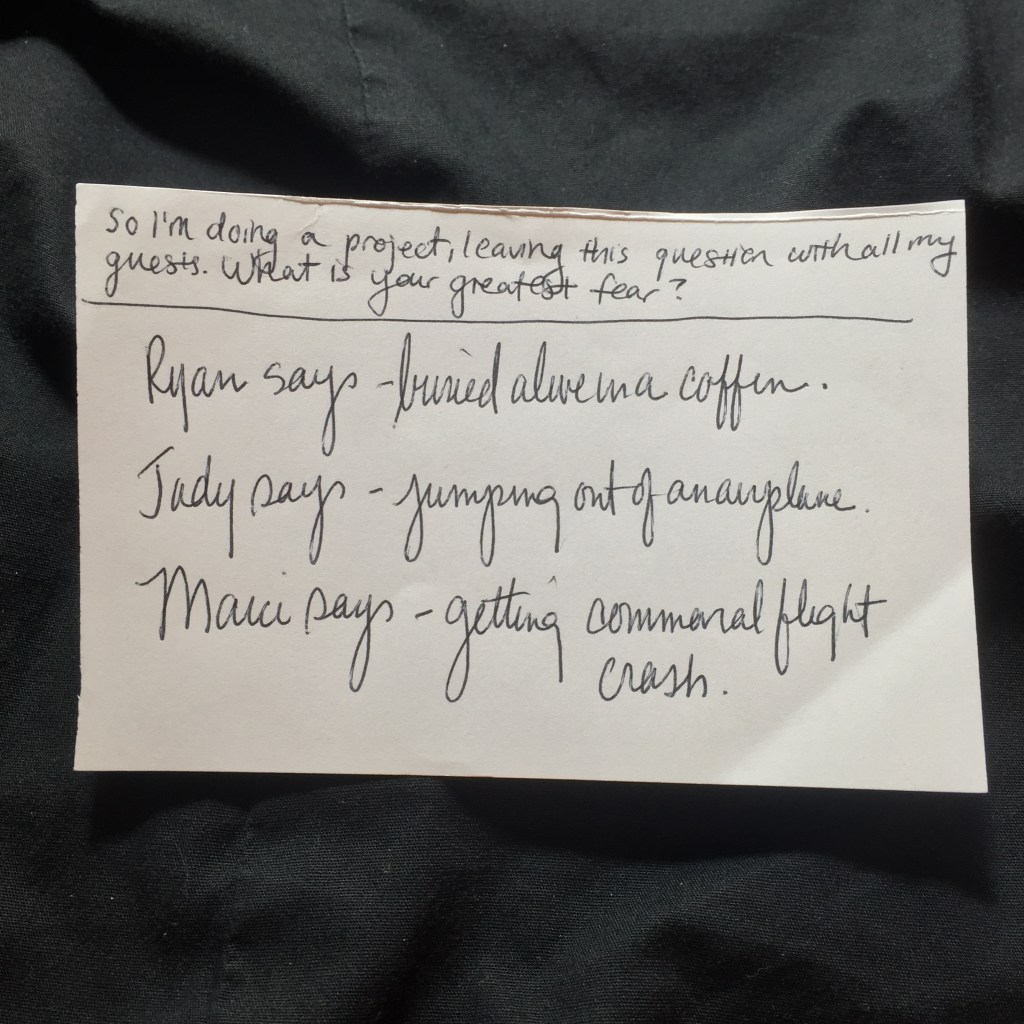 So I'm doing a project, leaving this question with all my
guests. What is your greatest fear?
Ryan says - buried alive in a coffin.
Judy says - jumping out of an airplane.
Marci says - getting commercial flight
crash.